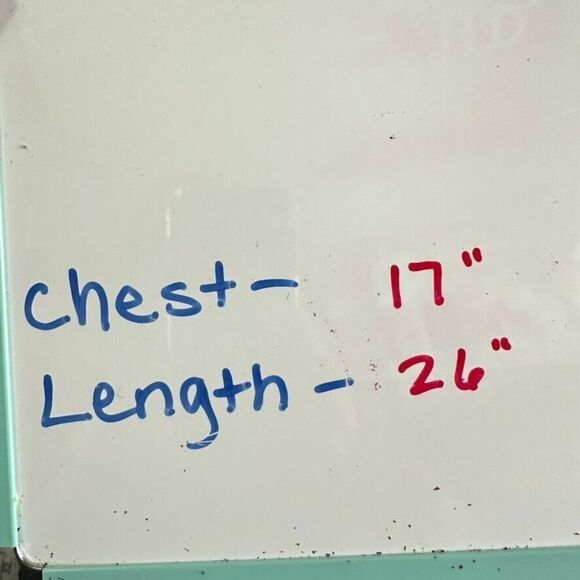 Chest- 17"
Length - 26"